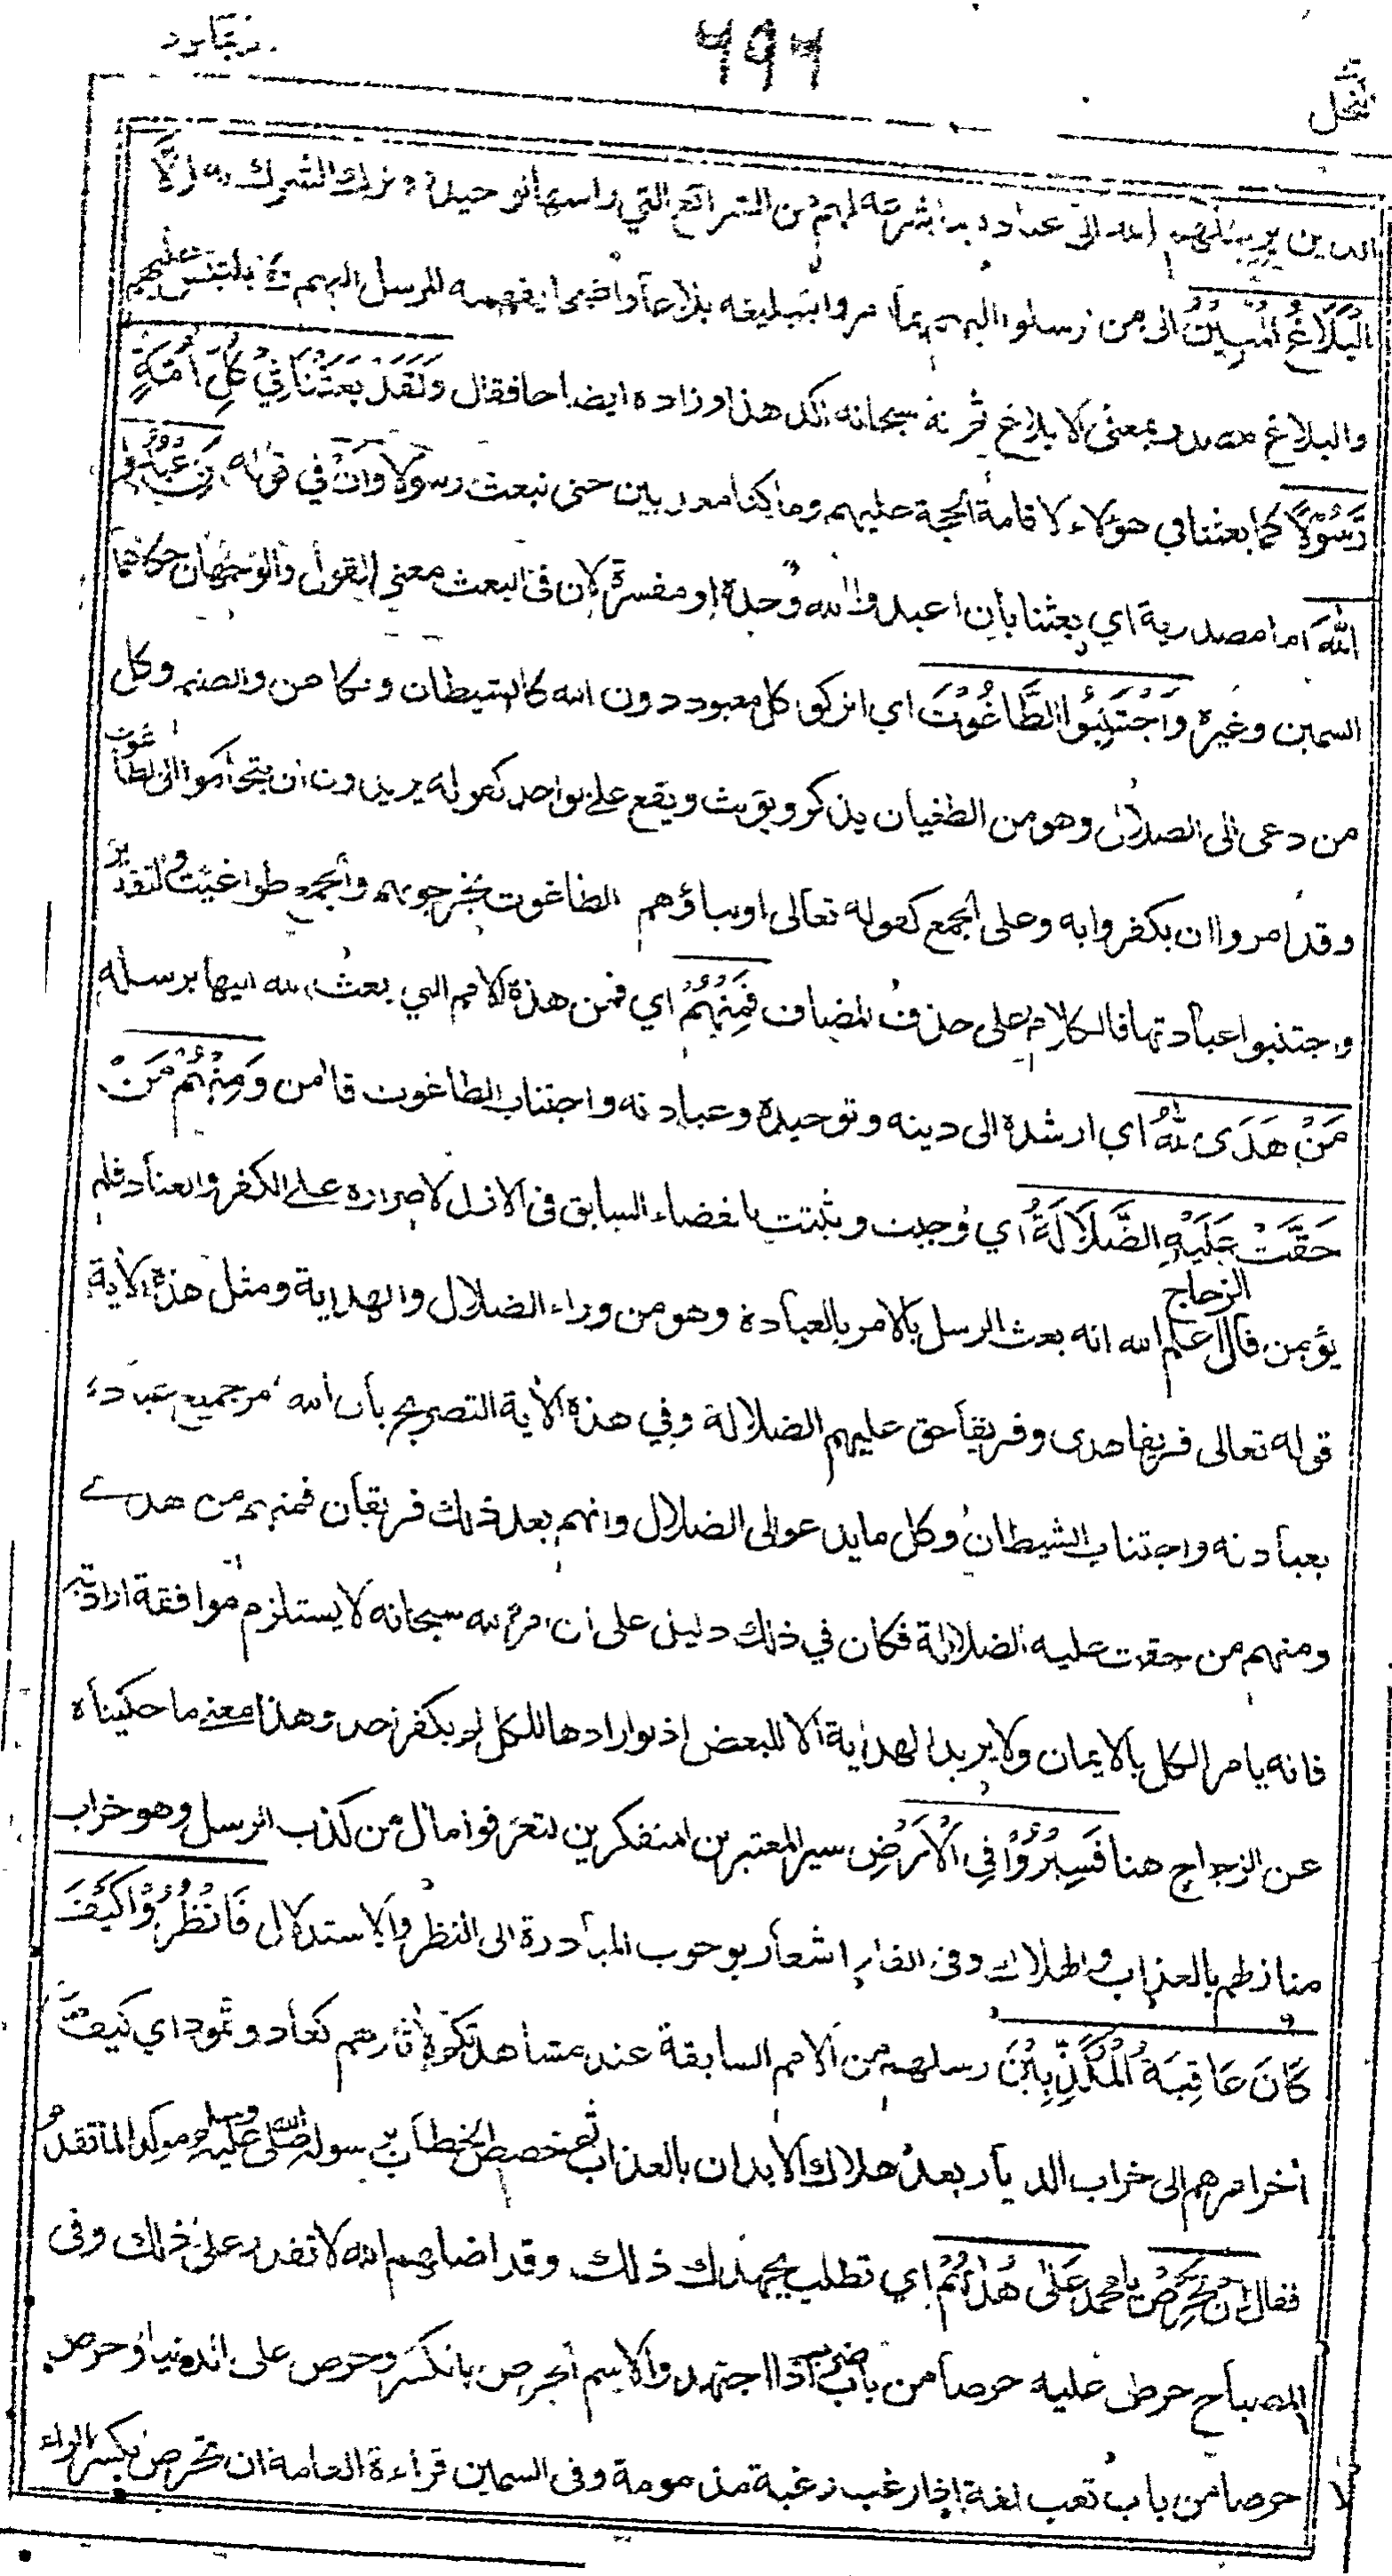 ربما ١٤
٦٩٦
النحل
الذين يرسلهم الله الى عباده بما شرعه لهم من الشرائع التي راسها توحيده وترك الشرك به الا
الْبَلَاغُ الْمُبِيْنُ الى من ارسلوا اليهم بما امروا بتبليغه بلاغا واضحا يفهمه المرسل اليهم ولا يلتبس عليهم
والبلاغ مصدر بمعنى الابلاغ ثم انه سبحانه اكد هذا وزاده ايضاحا فقال وَلَقَدْ بَعَثْنَا فِيْ كُلِّ اُمَّةٍ
رَّسُوْلًا كما بعثنا في هؤلاء لاقامة الحجة عليهم وما كنا معذبين حتى نبعث رسولا وان في قوله اَنِ اعْبُدُوا
اللّٰهَ اما مصدرية اي بعثنا بان اعبدوا الله وحده او مفسرة لان في البعث معنى القول والوجهان حكاهما
السمين وغيره وَاجْتَنِبُوا الطَّاغُوْتَ اي اتركوا كل معبود دون الله كالشيطان والكاهن والصنم وكل
من دعى الى الضلال وهو من الطغيان يذكر ويؤنث ويقع على الواحد كقوله يريدون ان يتحاكموا الى الطاغوت
وقد امروا ان يكفروا به وعلى الجمع كقوله تعالى اولياؤهم الطاغوت يخرجونهم والجمع طواغيت والتقدير
واجتنبوا عبادتها فالكلام على حذف المضاف فَمِنْهُمْ اي فمن هذه الامم التي بعث الله اليها برسله
مَنْ هَدَى اللّٰهُ اي ارشده الى دينه وتوحيده وعبادته واجتناب الطاغوت فامن وَمِنْهُمْ مَنْ
حَقَّتْ عَلَيْهِ الضَّلَالَةُ اي وجبت وثبتت بالقضاء السابق في الازل لاصراره على الكفر والعناد فلم
يؤمن قال الزجاج اعلم الله انه بعث الرسل بالامر بالعبادة وهو من وراء الضلال والهداية ومثل هذه الاية
قوله تعالى فريقا هدى وفريقا حق عليهم الضلالة وفي هذه الاية التصريح بان الله امر جميع عباده
بعبادته واجتناب الشيطان وكل ما يدعو الى الضلال وانهم بعد ذلك فريقان فمنهم من هدى
ومنهم من حقت عليه الضلالة فكان في ذلك دليل على ان امر الله سبحانه لا يستلزم موافقة ارادته
فانه يامر الكل بالايمان ولا يريد الهداية الا للبعض اذ لو ارادها للكل لم يكفر احد وهذا معنى ما حكيناه
عن الزجاج هنا فَسِيْرُوْا فِي الْاَرْضِ سير المعتبرين المتفكرين لتعرفوا مآل من كذب الرسل وهو خراب
منازلهم بالعذاب والهلاك وفي الفاء اشعار بوجوب المبادرة الى النظر والاستدلال فَانْظُرُوْا كَيْفَ
كَانَ عَاقِبَةُ الْمُكَذِّبِيْنَ رسلهم من الامم السابقة عند مشاهدتكم لاثارهم كعاد وثمود اي كيف
اخر امرهم الى خراب الديار بعد هلاك الابدان بالعذاب ثم خصص الخطاب برسوله صلى الله عليه وسلم موكدا لما تقدم
فقال اِنْ تَحْرِصْ يا محمد عَلٰى هُدٰىهُمْ اي تطلب بجهدك ذلك وقد اضلهم الله لا تقدر على ذلك وفي
المصباح حرص عليه حرصا من باب ضرب اذا اجتهد والاسم الحرص بالكسر وحرص على الدنيا وحرص
حرصا من باب تعب لغة اذا رغب رغبة مذمومة وفي السمين قراءة العامة ان تحرص بكسر الراء